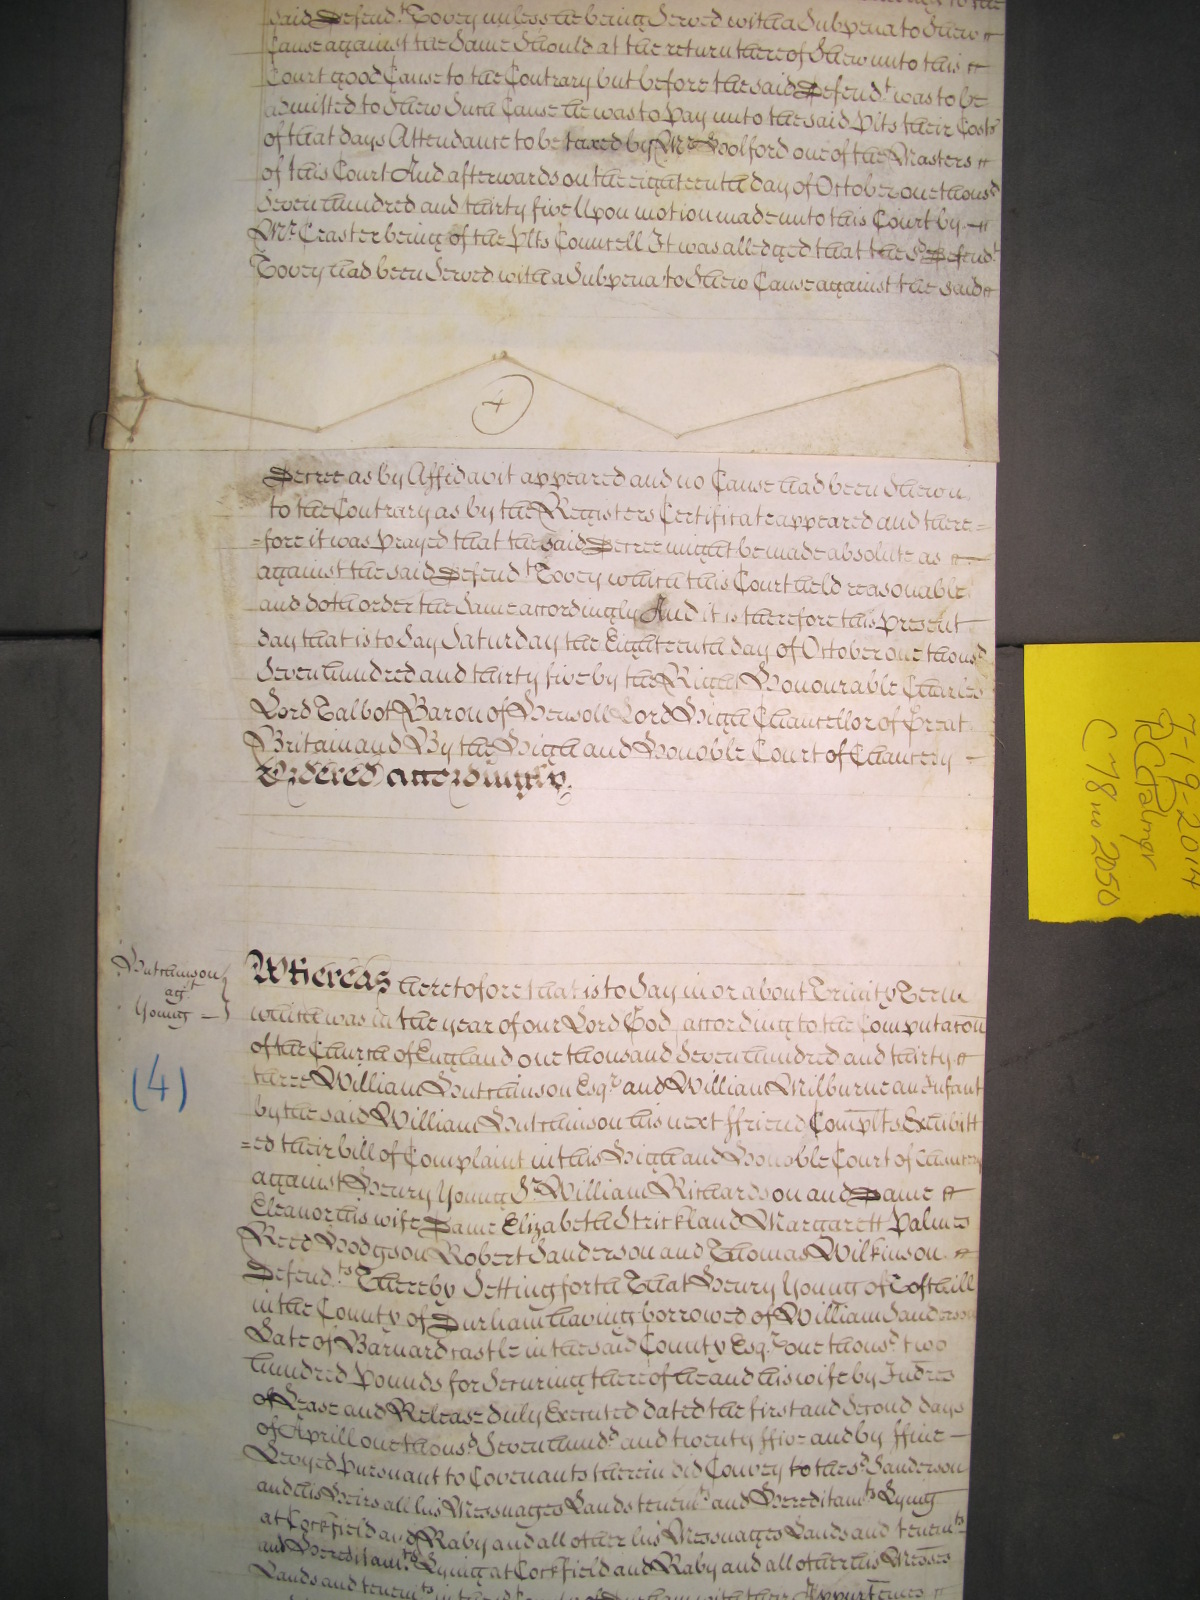 said Defend.t Tovey unless he being Served with a Subpena to Shew
Cause against the Same Should at the return thereof Shew unto this
Court good Cause to the Contrary but before the said Defend.t was to be
admitted to Shew Such Cause he was to pay unto the said Plts their Costs
of that days Attendance to be taxed by Mr. Holford one of the Masters
of this Court And afterwards on the eighteenth day of October one thous.d
Seven hundred and thirty five Upon motion made unto this Court by
Mr. Craster being of the Plts Councell It was alledged that the s.d Defend.t
Tovey had been Served with a Subpena to Shew Cause against the said
4
Decree as by Affidavit appeared and no Cause had been Shewn
to the Contrary as by the Registers Certificate appeared and there=
=fore it was prayed that the said Decree might be made absolute as
against the said Defend.t Tovey which this Court held reasonable
and doth order the Same accordingly And it is therefore this present
day that is to Say Saturday the Eighteenth day of October one thous.d
Seven hundred and thirty five by the Right Honourable Charles
Lord Talbot Baron of Hensoll Lord High Chancellor of Great
Britain and By the High and Honoble Court of Chancery
Ordered accordingly.
Hutchinson
ag.t
Young
(4)
Whereas heretofore that is to Say in or about Trinity Term
which was in the year of our Lord God according to the Computacon
of the Church of England one thousand Seven hundred and thirty
three William Hutchinson Esq.r and William Milburne an Infant
by the said William Hutchinson his next ffriend Complts Exhibitt
=ed their bill of Complaint in this High and Honoble Court of Chancery
against Henry Young S.r William Richardson and Dame
Eleanor his wife Dame Elizabeth Strickland Margarett Palmes
Reed Hodgson Robert Sanderson and Thomas Wilkinson
Defend.ts Thereby Setting forth That Henry Young of
in the County of Durham having borrowed of William Sanderson
Late of Barnardcastle in the said County Esq.r one thous.d two
hundred Pounds for Securing thereof he and his wife by Indres
of Lease and Release duly Executed dated the first and Second days
of Aprill one thous.d Seven hund.d and twenty ffive and by ffine
Levyed pursuant to Covenants therein did Convey to the s.d Sanderson
and his Heirs all his Messuages Lands tenem.ts and Hereditam.ts Lying
at Cockfield and Raby and all other his Messuages Lands and tenem.ts
and Hereditam.ts Lying at Cockfield and Raby and all other his Messes
Lands and tenem.ts in the s.d County of Durham with their Appurtences
7-19-2014
RCPalmer
C 78 no 2050